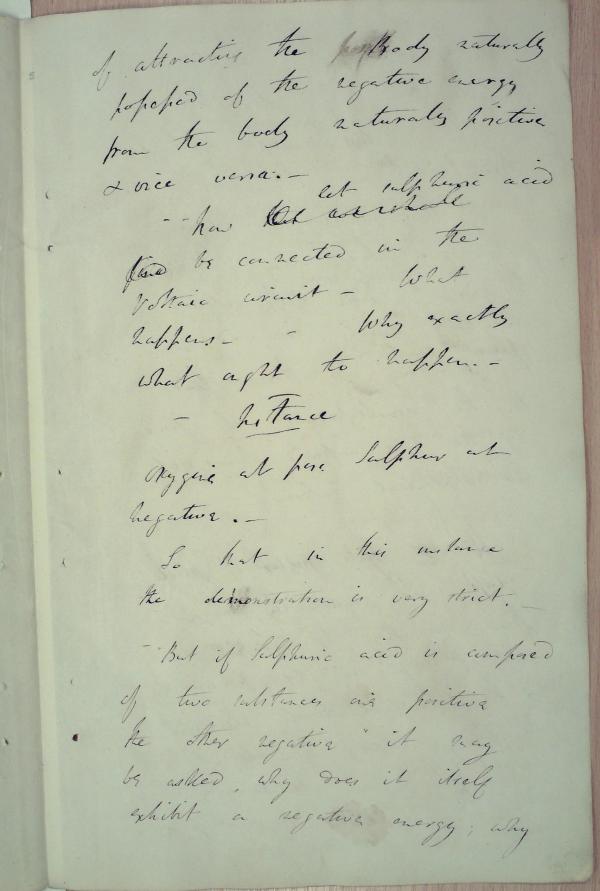 of attracting the Body naturally
possessed of the negative energy
from the body naturally positive
& vice versa. -
let sulphuric acid
- - how
be connected in the
Voltaic circuit - What
happens - - Why exactly
what ought to happen. -
- Instance
oxygene at pos. Sulphur at
negative. -
So that in this instance
the demonstration is very strict. -
- But if Sulphuric acid is composed
of two substances one positive
the other negative it may
be asked, why does it itself
exhibit a negative energy; why